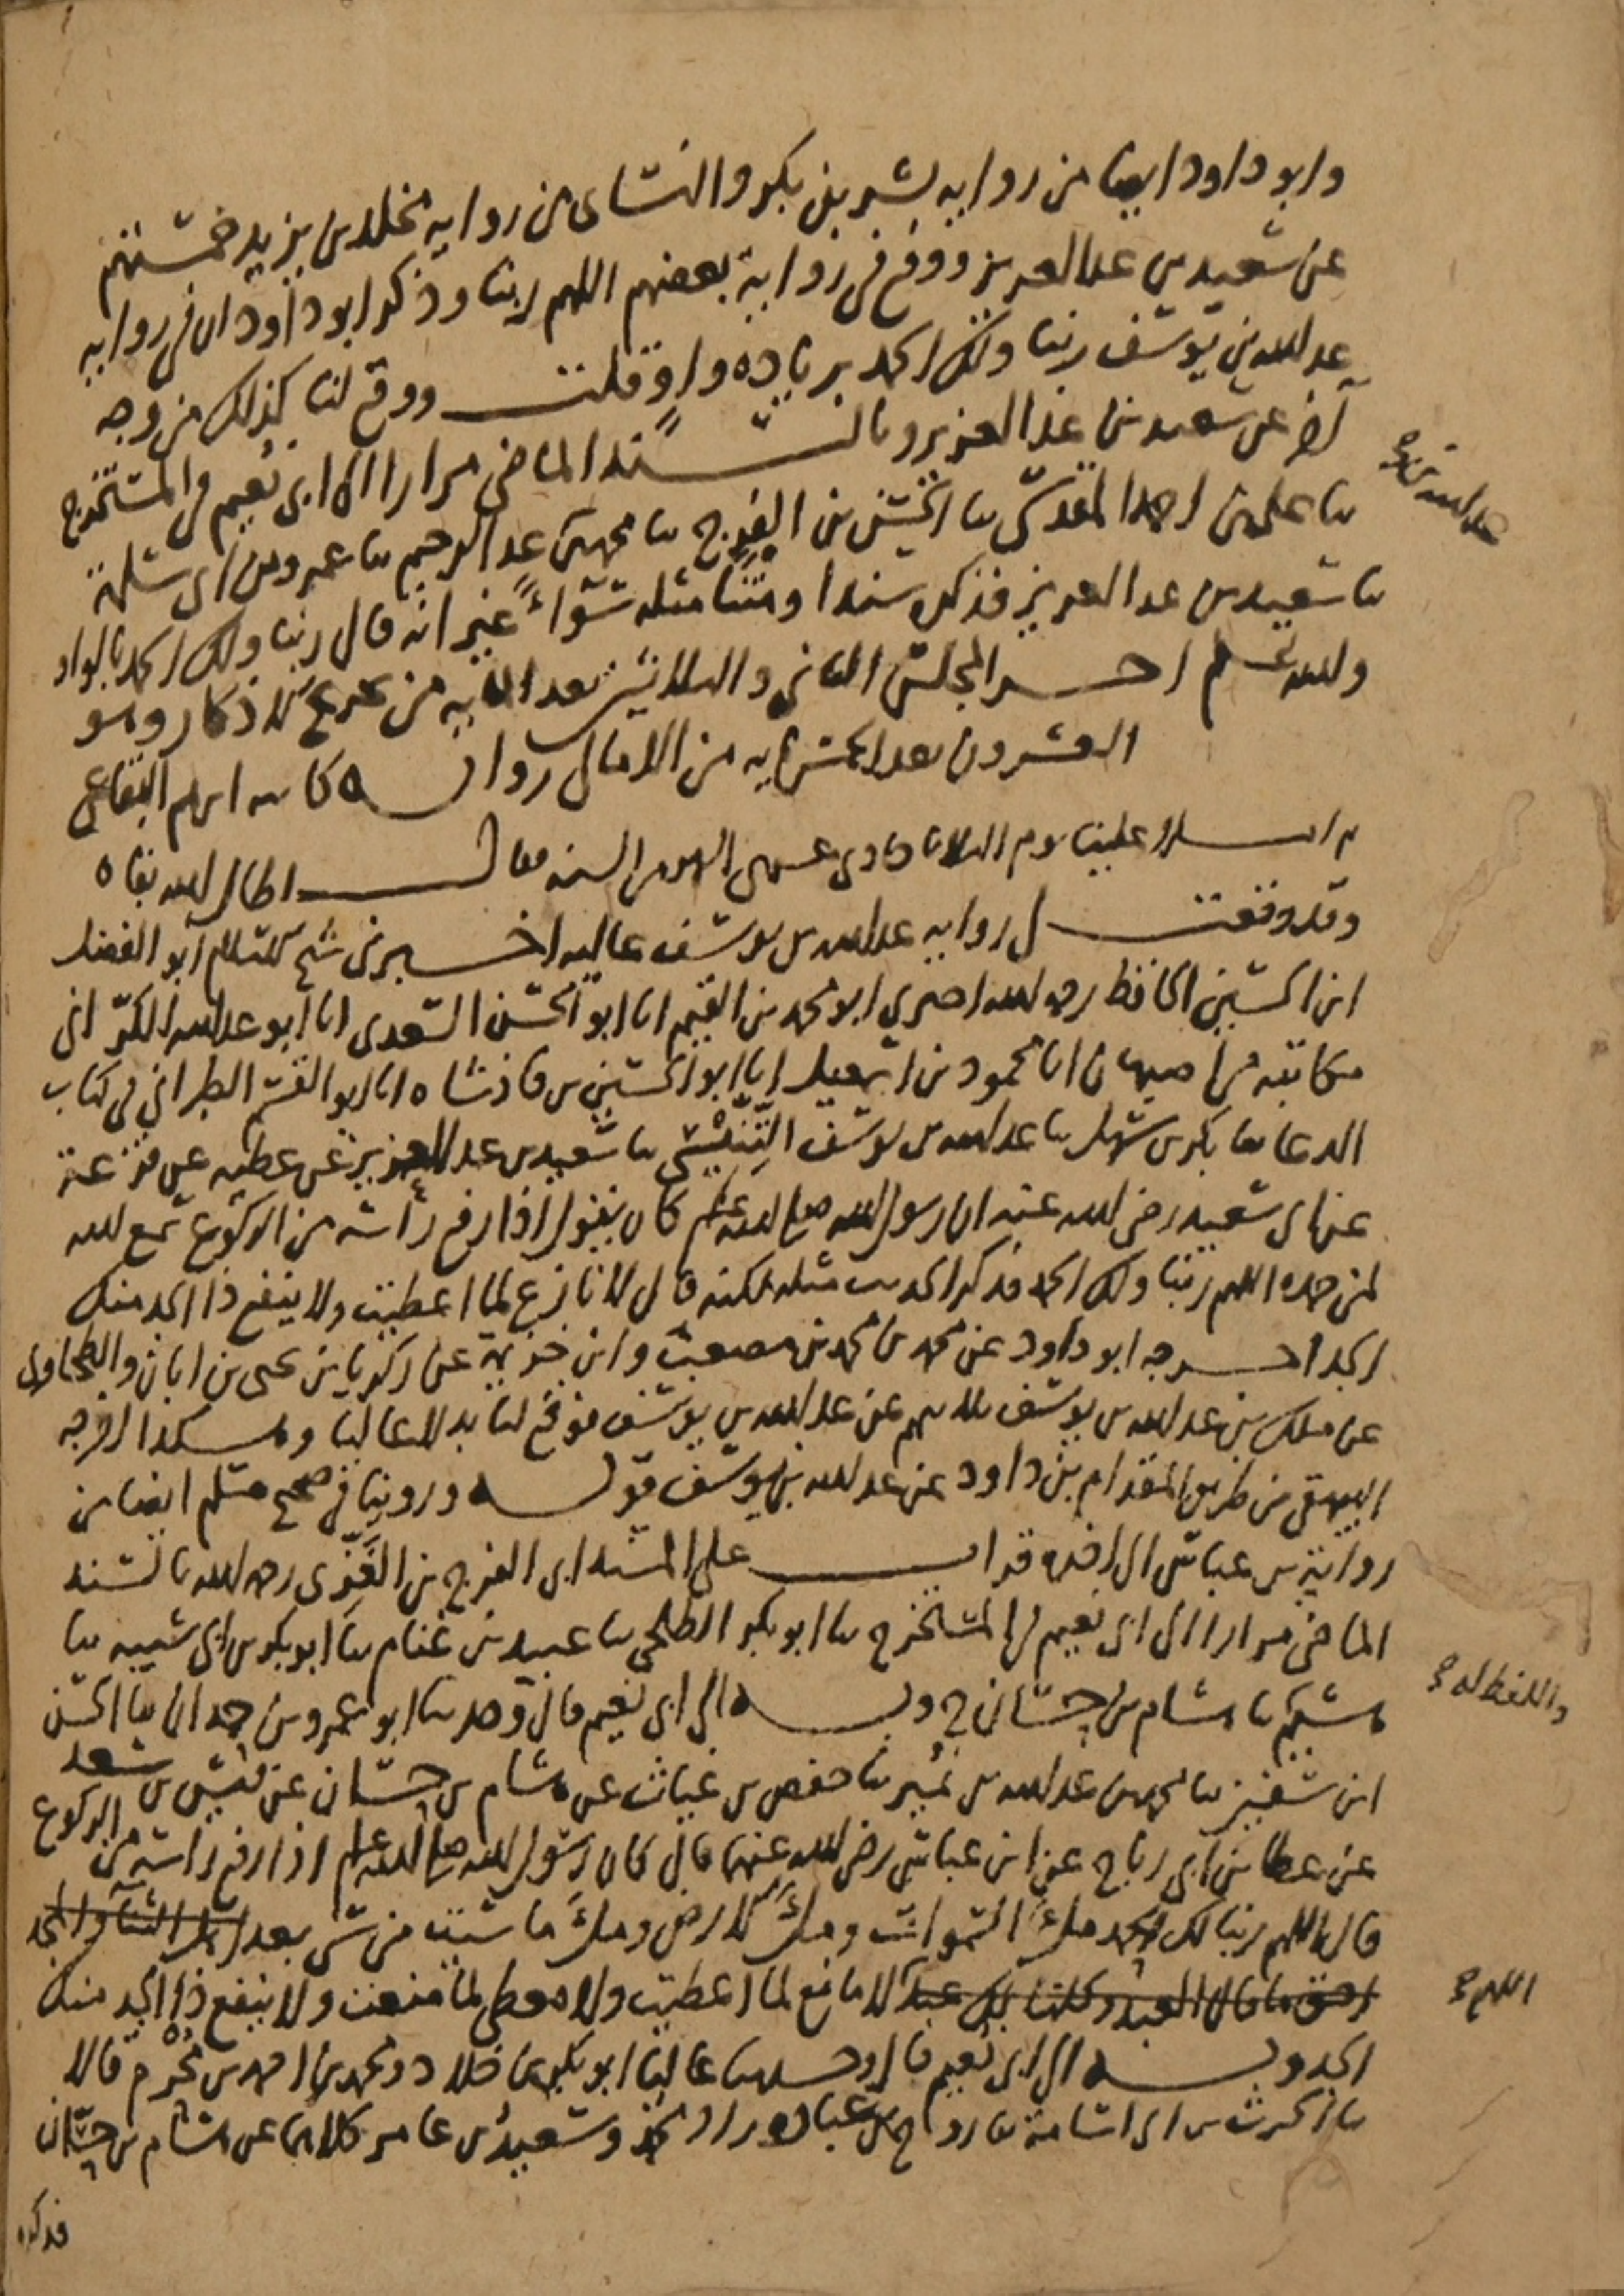 وابو داود ايضا من رواية بشر بن بكر والنسائي من رواية مخلد بن يزيد خمستهم
عن سعيد بن عبد العزيز ووقع في رواية بعضهم اللهم ربنا وذكر ابو داود ان في رواية
عبد الله بن يوسف ربنا ولك الحمد بزيادة واو قلت ووقع لنا كذلك من وجه
آخر عن سعيد بن عبد العزيز وبالسند الماضي مرارا الى ابي نعيم في المستخرج
ثنا علي بن احمد المقدسي ثنا الحسن بن الفرج ثنا محمد بن عبد الرحيم ثنا عمرو بن ابي سلمة
ثنا سعيد بن عبد العزيز فذكره سندا ومتنا مثله سواء غير انه قال ربنا ولك الحمد بالواو
والله اعلم آخر المجلس الثاني والثلاثين بعد المائة من تخريج الاذكار وهو
العشرون بعد الخمسماية من الامالي رواية كاتبه ابرهيم البقاعي
ثم املا علينا يوم الثلاثا حادي عشرين الشهر من السنة فقال اطال الله بقاه
وقد وقعت لي رواية عبد الله بن يوسف عالية اخبرني شيخ الاسلام ابو الفضل
ابن الحسين الحافظ رحمه الله اخبرني ابو محمد بن القيم انا ابو الحسن السعدي انا ابو عبد الله الكراني
مكاتبة من اصبهان انا محمود بن اسمعيل انا ابو الحسين بن فاذشاه انا ابو القسم الطبراني في كتاب
الدعا ثنا بكر بن سهل ثنا عبد الله بن يوسف التنيسي ثنا سعيد بن عبد العزيز عن عطية عن قزعة
عن ابي سعيد رضي الله عنه ان رسول الله صلى الله عليه وسلم كان يقول اذا رفع رأسه من الركوع سمع الله
لمن حمده اللهم ربنا ولك الحمد فذكر الحديث مثله لكنه قال لا نازع لما اعطيت ولا ينفع ذا الجد منك
الجد اخرجه ابو داود عن محمد بن محمد بن مصعب وابن خزيمة عن زكريا بن يحيى بن ابان والطحاوي
عن ملك بن عبد الله بن يوسف ثلاثتهم عن عبد الله بن يوسف فوقع لنا بدلا عاليا وهكذا اخرجه
البيهقي من طريق المقدام بن داود عن عبد الله بن يوسف قوله وروينا في صحيح مسلم ايضا من
رواية بن عباس الى اخره قرات على المسند ابي الفرج بن الغزي رحمه الله بالسند
الماضي مرارا الى ابي نعيم في المستخرج ثنا ابو بكر الطلحي ثنا عبيد بن غنام ثنا ابو بكر بن ابي شيبه ثنا
هشيم ثنا هشام بن حسان ح وبه الى ابي نعيم قال وحدثنا ابو عمرو بن حمدان ثنا الحسن
ابن سفين ثنا محمد بن عبد الله بن نمير ثنا حفص بن غياث عن هشام بن حسان عن قيس بن سعد
عن عطا بن ابي رباح عن ابن عباس رضي الله عنهما قال كان رسول الله صلى الله عليه وسلم اذا رفع رأسه من الركوع
قال اللهم ربنا لك الحمد ملأ السموات وملأ الارض وملأ ما شئت من شى بعد اهل الثنا والمجد
احق ما قال العبد وكلنا لك عبد لا مانع لما اعطيت ولا معطي لما منعت ولا ينفع ذا الجد منك
الجد وبه الى ابي نعيم قال وحدثنا عاليا ابو بكر بن خلاد ومحمد بن احمد بن محرم قالا
ثنا الحرث بن ابي اسامة ثنا روح بن عبادة وسعيد بن عامر كلاهما عن هشام بن حسان
فذكره
عبد الله بن
واللفظ له
اللهم